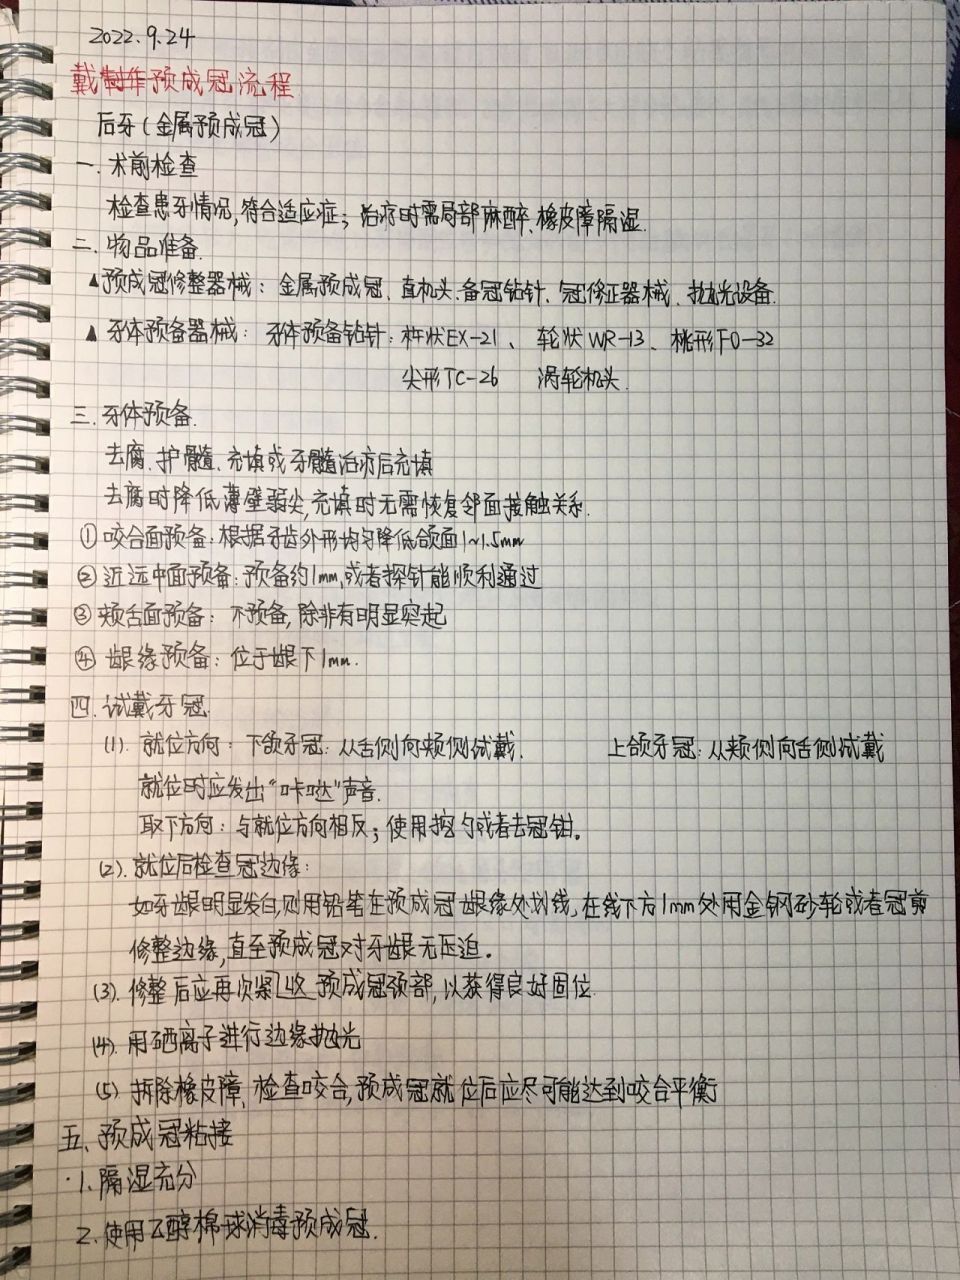 2022.9.24
戴制作预成冠流程
后牙(金属预成冠)
一.术前检查
检查患牙情况,符合适应症;治疗时需局部麻醉、橡皮障隔湿.
二.物品准备.
▲预成冠修整器械:金属预成冠、直机头、备冠钻针、冠修正器械、抛光设备.
▲牙体预备器械:牙体预备钻针:杵状EX-21、轮状WR-13、桃形FO-32
尖形TC-26 涡轮机头.
三.牙体预备.
去腐、护髓、充填或牙髓治疗后充填
去腐时降低薄壁弱尖,充填时无需恢复邻面接触关系.
①咬合面预备:根据牙齿外形均匀降低颌面1~1.5mm
②近远中面预备:预备约1mm,或者探针能顺利通过
③颊舌面预备:不预备,除非有明显突起
④龈缘预备:位于龈下1mm.
四.试戴牙冠.
(1).就位方向:下颌牙冠:从舌侧向颊侧试戴. 上颌牙冠:从颊侧向舌侧试戴
就位时应发出“咔哒”声音.
取下方向:与就位方向相反;使用挖勺或者去冠钳。
(2).就位后检查冠边缘:
如牙龈明显发白,则用铅笔在预成冠龈缘处划线,在线下方1mm处用金钢砂轮或者冠剪
修整边缘,直至预成冠对牙龈无压迫。
(3).修整后应再次紧收预成冠颈部,以获得良好固位.
(4).用硒离子进行边缘抛光
(5)拆除橡皮障、检查咬合,预成冠就位后应尽可能达到咬合平衡
五、预成冠粘接
·1.隔湿充分
2.使用乙醇棉球消毒预成冠.